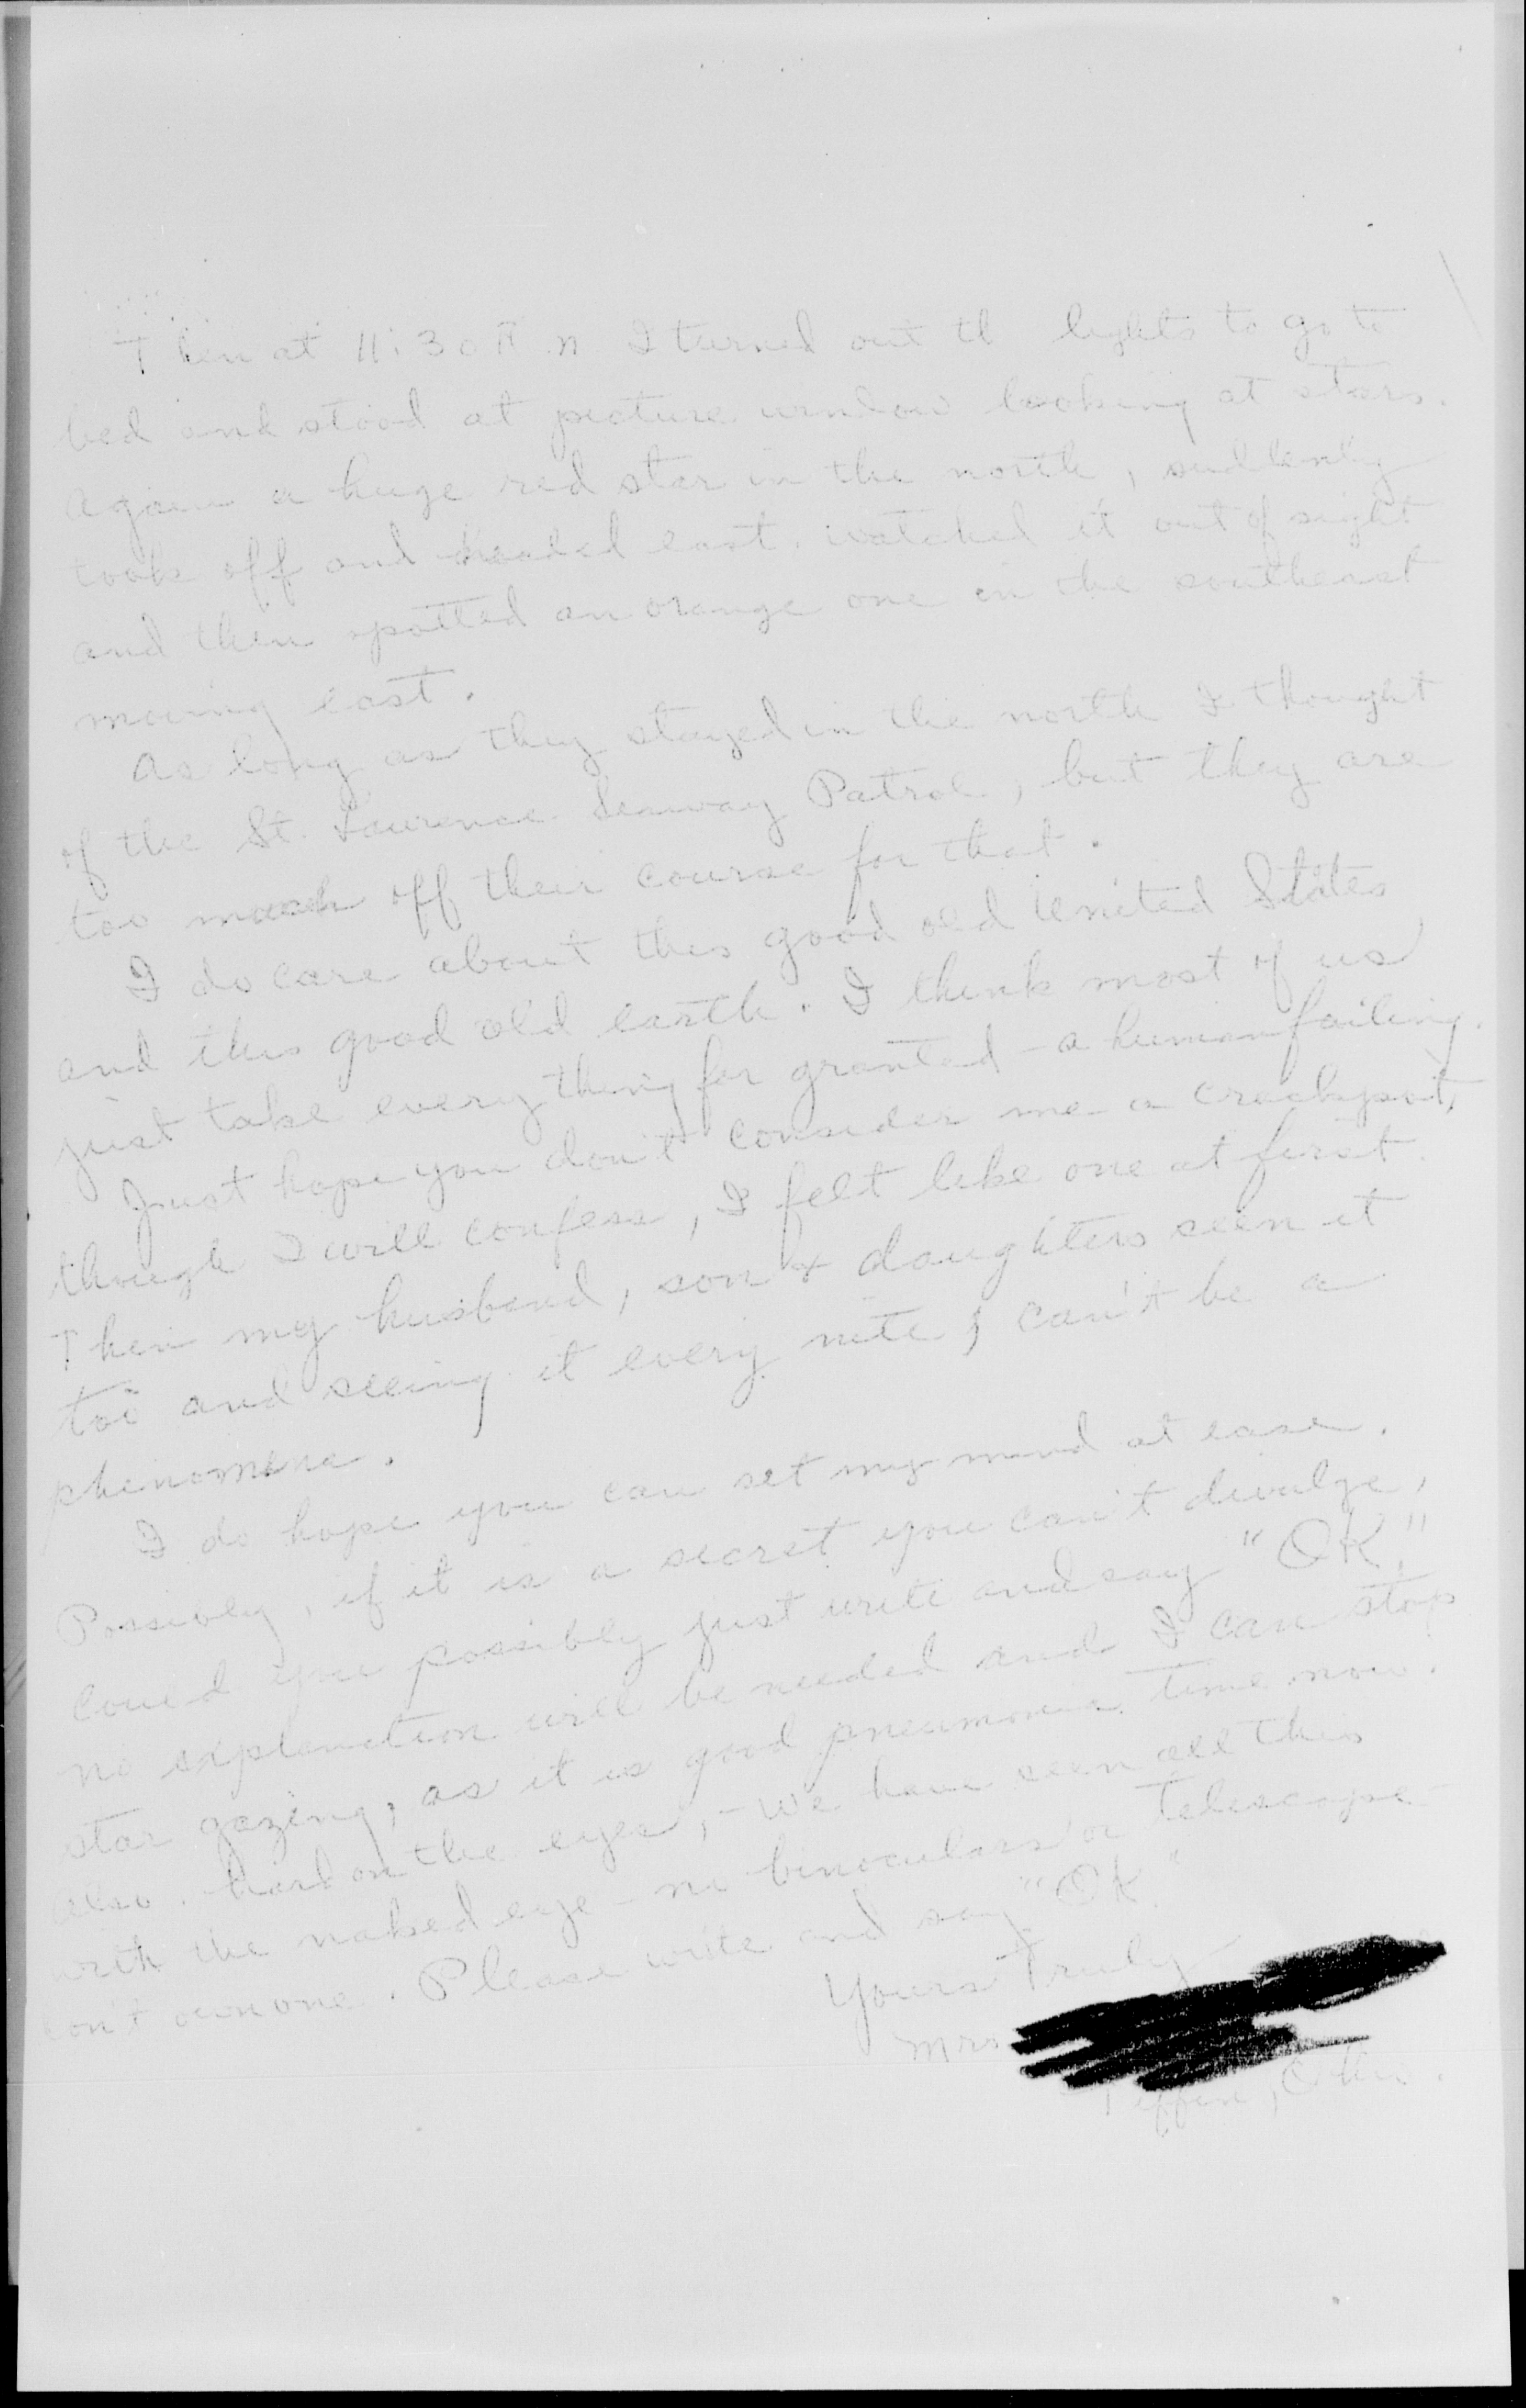 Then at 11:30 P.M. I turned out th lights to go to
bed and stood at picture window looking at stars.
Again a huge red star in the north, suddenly
took off and headed east, watched it out of sight
and then spotted an orange one in the southeast
moving east.
As long as they stayed in the north I thought
of the St. Laurence Seaway Patrol, but they are
too much off their course for that.
I do care about this good old United States
and this good old earth. I think most of us
just take everything for granted - a human failing.
Just hope you don't consider me a crackpot,
though I will confess, I felt like one at first.
Then my husband, son & daughters seen it
too and seeing it every nite, can't be a
phenomena.
I do hope you can set my mind at ease.
Possibly, if it is a secret you can't divulge,
could you possibly just write and say "OK."
no explanation will be needed and I can stop
star gazing, as it is good pneumonia time now.
also. hard on the eyes, - We have seen all this
with the naked eye - no binoculars or telescope -
don't own one. Please write and say "OK."
Yours Truly -
Mrs
Tiffin, Ohio.